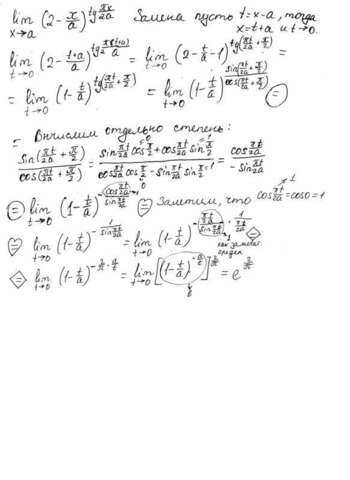 lim x→a (2 - x/a)^(tg πx/2a) Замена пусть t = x-a, тогда
x = t+a и t→0.
lim t→0 (2 - (t+a)/a)^(tg π(t+a)/2a) = lim t→0 (2 - t/a - 1)^(tg(πt/2a + π/2)) =
= lim t→0 (1 - t/a)^(tg(πt/2a + π/2)) = lim t→0 (1 - t/a)^(sin(πt/2a + π/2)/cos(πt/2a + π/2)) =
= Вычислим отдельно степень:
sin(πt/2a + π/2)/cos(πt/2a + π/2) = (sin πt/2a cos π/2 + cos πt/2a sin π/2)/(cos πt/2a cos π/2 - sin πt/2a sin π/2) = cos πt/2a / -sin πt/2a
= lim t→0 (1 - t/a)^(-cos πt/2a / sin πt/2a) = Заметим, что cos πt/2a = cos0 = 1
= lim t→0 (1 - t/a)^(-1/sin πt/2a) = lim t→0 (1 - t/a)^(-(πt/2a)/(sin πt/2a) · 1/(πt/2a)) =
как замечат. предел
= lim t→0 (1 - t/a)^(-2/π · a/t) = lim t→0 [(1 - t/a)^(-a/t)]^(2/π) = e^(2/π)
e